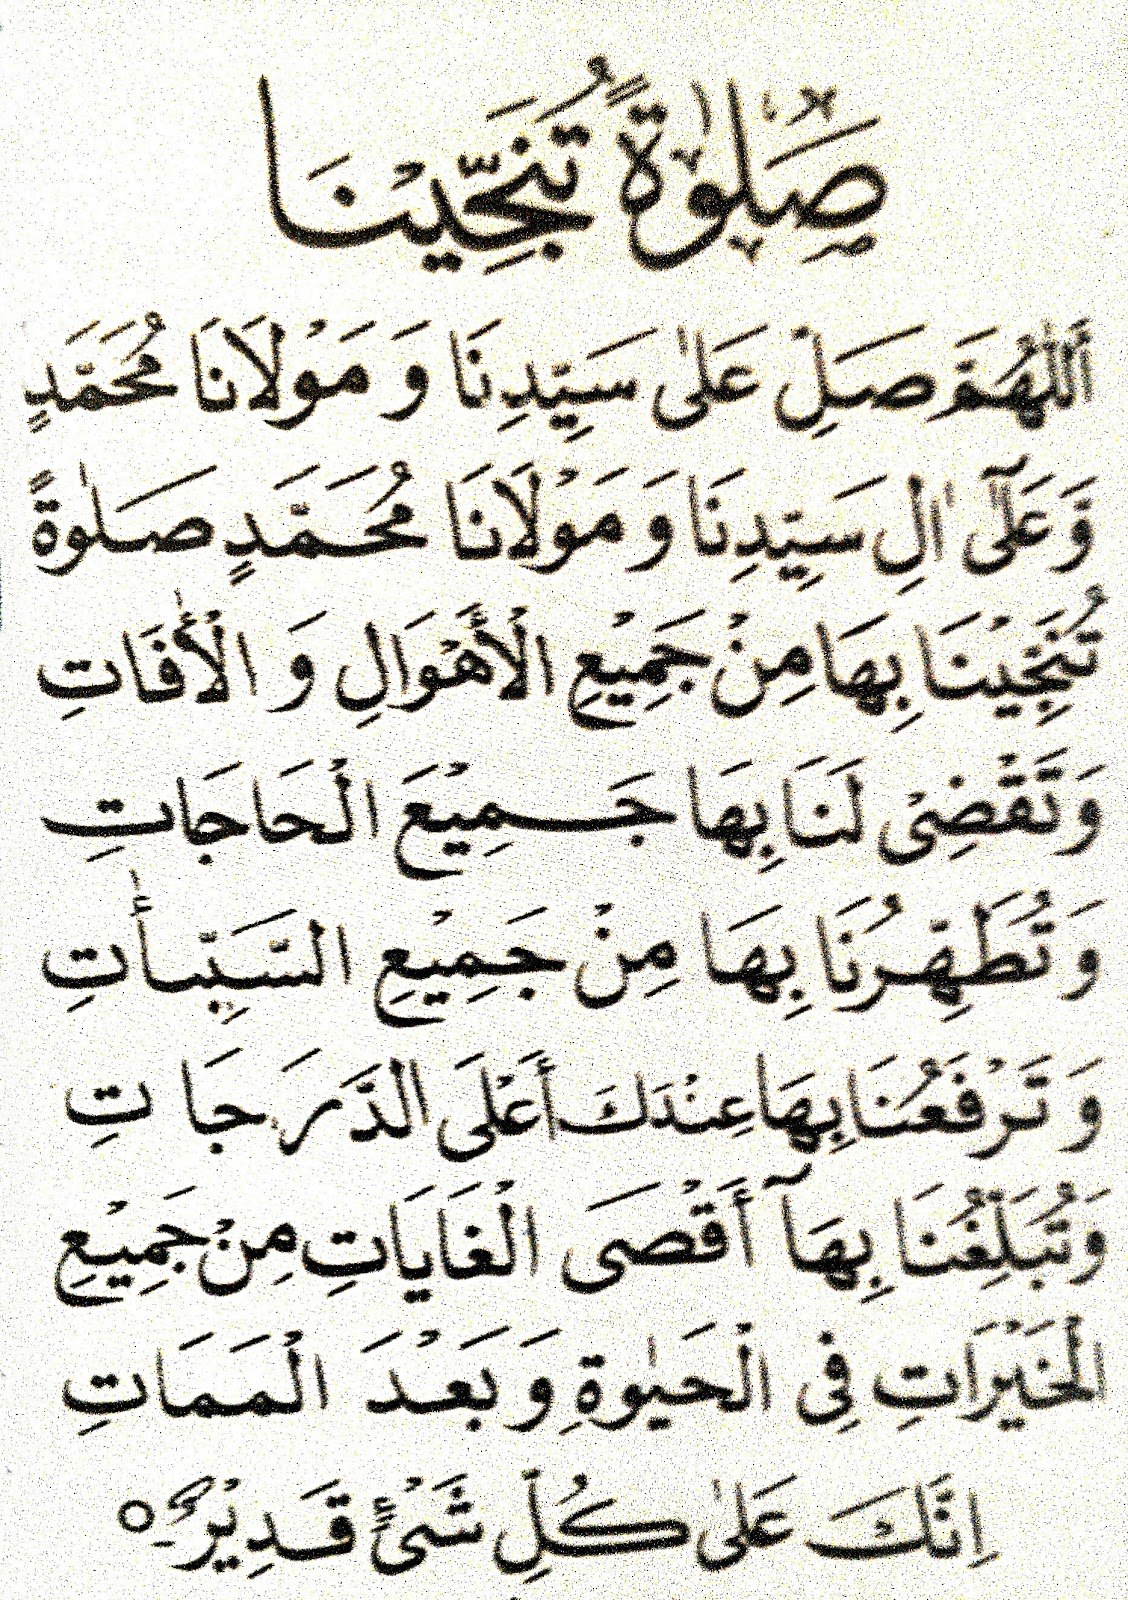 صَلٰوةً تُنَجِّيْنَا
اَللّٰهُمَّ صَلِّ عَلٰى سَيِّدِنَا وَ مَوْلَانَا مُحَمَّدٍ
وَّعَلٰٓى اٰلِ سَيِّدِنَا وَ مَوْلَانَا مُحَمَّدٍ صَلٰوةً
تُنَجِّيْنَا بِهَا مِنْ جَمِيْعِ الْأَهْوَالِ وَ الْأٰفَاتِ
وَتَقْضِىْ لَنَا بِهَا جَمِيْعَ الْحَاجَاتِ
وَ تُطَهِّرُنَا بِهَا مِنْ جَمِيْعِ السَّيِّـأٰتِ
وَ تَرْفَعُنَا بِهَا عِنْدَكَ أَعْلَى الدَّرَجَاتِ
وَتُبَلِّغُنَا بِهَآ أَقْصَى الْغَايَاتِ مِنْ جَمِيْعِ
الْخَيْرَاتِ فِى الْحَيٰوةِ وَ بَعْدَ الْمَمَاتِ
اِنَّكَ عَلٰى كُلِّ شَىْئٍ قَدِيْرٌ ○